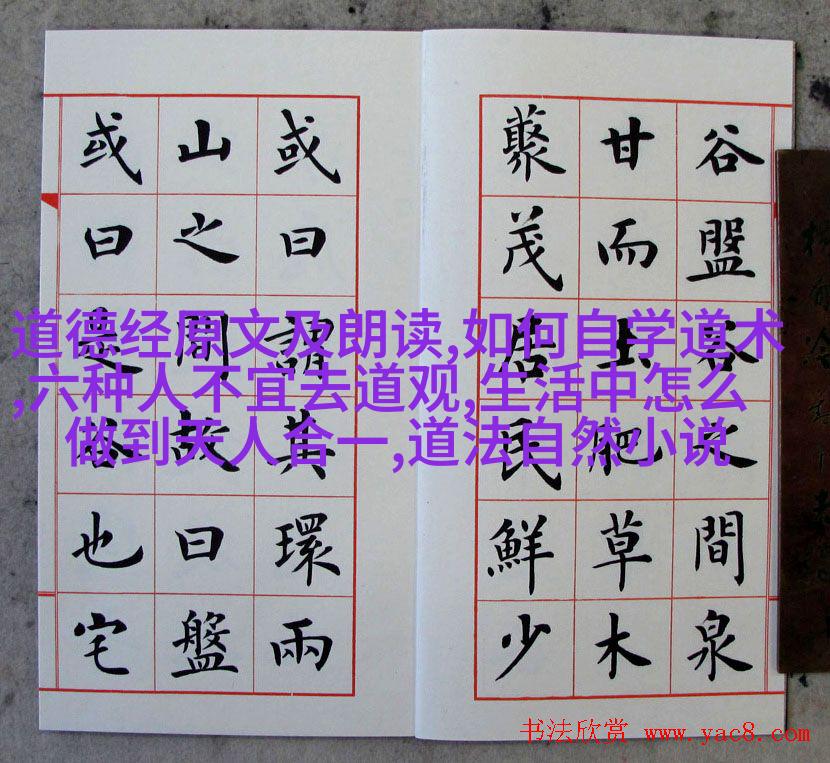 谷盤谷之間泉
甘而土肥草木
藂茂居民鮮少
或曰謂其環兩
山之間故曰盤
或曰是谷也宅
道德经原文及朗读,如何自学道术
,六种人不宜去道观,生活中怎么
做到天人合一,道法自然小说
书法欣赏 www.yac8.com